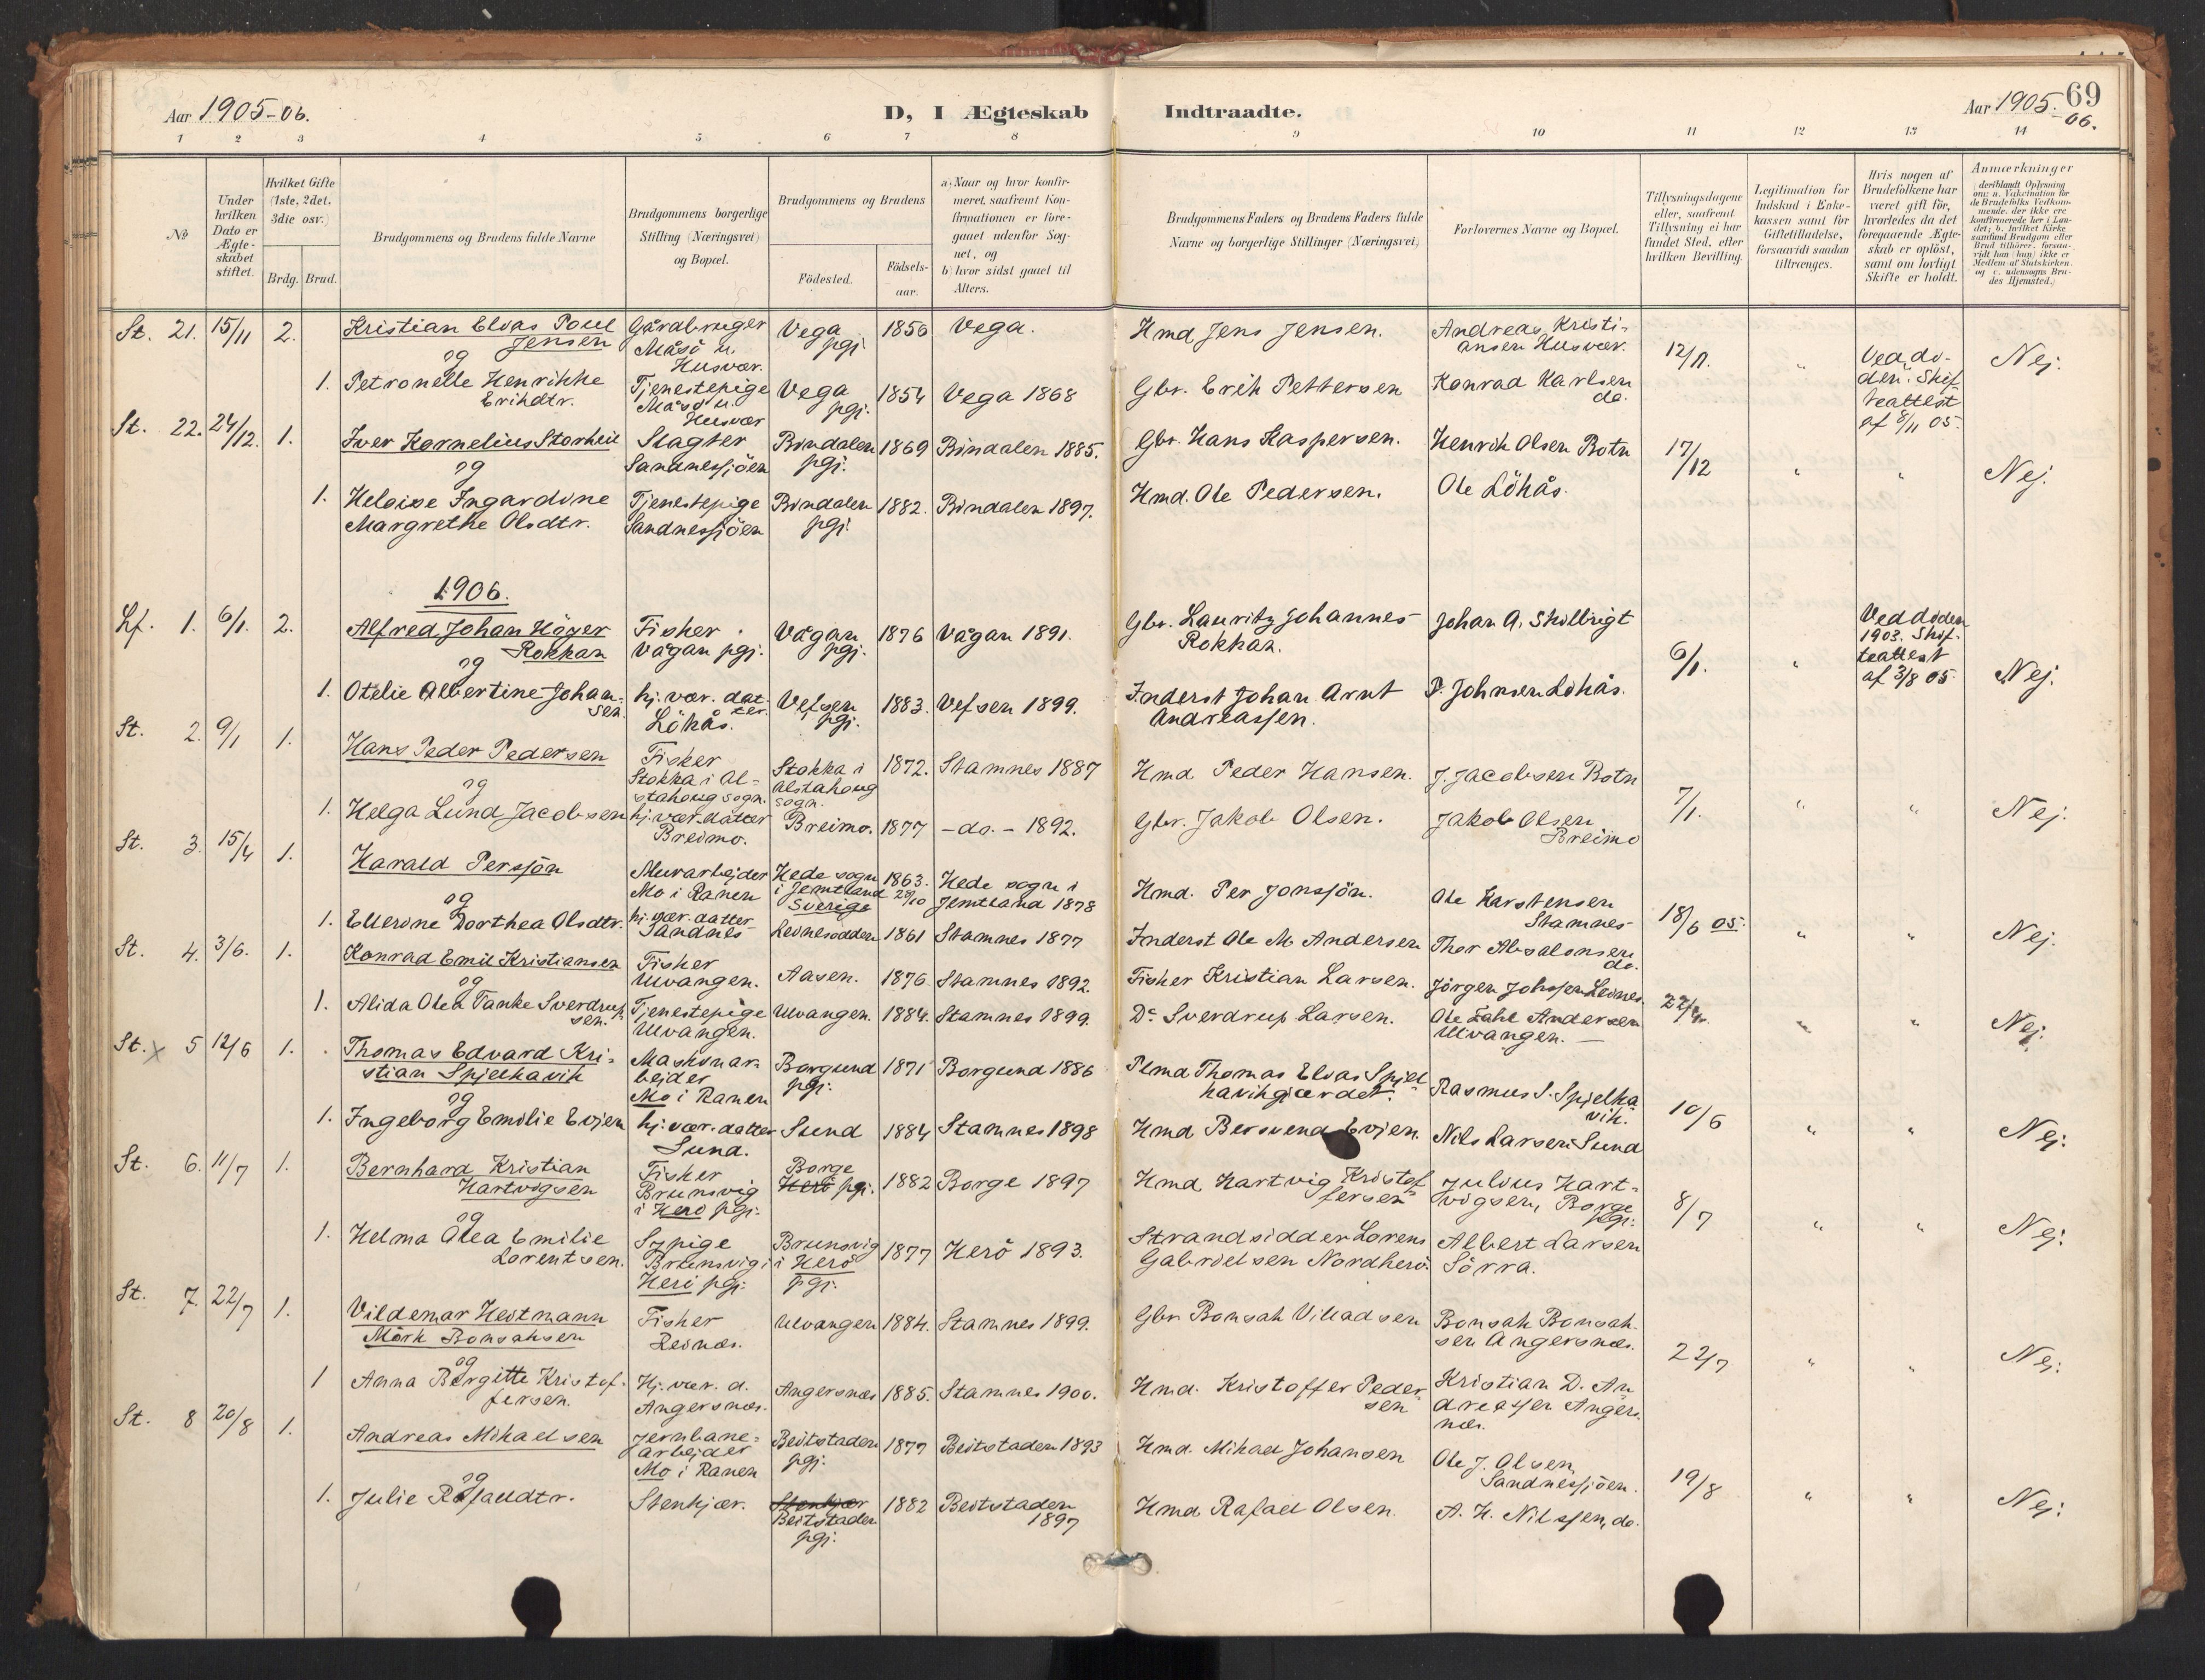 Aar 1905-06.
D, I Ægteskab Indtraadte.
Aar 1905-06.
69
1 2 3 4 5 6 7 8 9 10 11 12 13 14
№
Under hvilken Dato er Ægteskabet stiftet.
Hvilket Gifte (1ste, 2det, 3die osv.)
Brdg. Brud.
Brudgommens og Brudens fulde Navne
Brudgommens borgerlige Stilling (Næringsvei) og Bopæl.
Brudgommens og Brudens
Fødested.
Fødselsaar.
a. Naar og hvor konfirmeret, saafremt Konfirmationen er foregaaet udenfor Sognet, og
b) hvor sidst gaaet til Alters.
Brudgommens Faders og Brudens Faders fulde Navne og borgerlige Stillinger (Næringsvei)
Forlovernes Navne og Bopæl.
Tillysningsdagene eller, saafremt Tillysning ei har fundet Sted, efter hvilken Bevilling.
Legitimation for Indskud i Enkekassen samt for Giftetilladelse, forsaavidt saadan tiltrænges.
Hvis nogen af Brudefolkene har været gift før, hvorledes da det foregaaende Ægteskab er opløst, samt om lovligt Skifte er holdt.
Anmærkninger
(deriblandt Oplysning om: a. Vakcination for de Brudefolks Vedkommende, der ikke ere konfirmerede her i Landet; b. hvilket Kirkesamfund Brudgom eller Brud tilhører, forsaavidt han (hun) ikke er Medlem af Statskirken, og c. udensogns Brudes Hjemsted.)
St. 21. 15/11 2. Kristian Elvas Poul Jensen Gårdbruger Måsö u. Husvær. Vega pgj. 1850 Vega. Hmd Jens Jensen. Andreas Kristiansen Husvær. 12/11. " Ved döden. Skifteattest af 8/11 05. Nej.
og
1. Petronelle Henrikke Erikdtr. Tjenestepige Måsö u. Husvær Vega pgj. 1854 Vega 1868 Gbr. Erik Pettersen Konrad Karlsen do.
St. 22. 24/12. 1. Iver Kornelius Storheil Slagter Sandnessjöen Bindalen pgj. 1869 Bindalen 1885. Gbr. Hans Kaspersen. Henrik Olsen Botn 17/12 " " Nej.
og
1. Heloise Ingardine Margrethe Olsdtr. Tjenestepige Sandnessjöen Bindalen pgj. 1882. Bindalen 1897. Hmd. Ole Pedersen. Ole Lökås.
1906.
Lf. 1. 6/1. 2. Alfred Johan Höyer Rokkan Fisker Vågan pgj. Vågan pgj. 1876 Vågan 1891. Gbr. Lauritz Johannes Rokkan. Johan A. Skilbrigt 6/1. " Ved döden 1903. Skifteattest af 3/8 05. Nej.
og
1. Otelie Albertine Johansen. hj. vær. datter. Lökås. Vefsen pgj. 1883. Vefsen 1899. Inderst Johan Arnt Andreassen. P. Johnsen Lökås.
St. 2. 9/1 1. Hans Peder Pedersen Fisker Stokka i Alstahaug sogn. Stokka i Alstahaug sogn. 1872. Stamnes 1887 Hmd Peder Hansen. J. Jacobsen Botn 7/1. " " Nej.
og
1. Helga Lund Jacobsen hj. vær. datter Breimo. Breimo. 1877 - do. - 1892. Gbr. Jakob Olsen. Jakob Olsen Breimo
St. 3. 15/4 1. Harald Persjön Murarbejder Mo i Ranen Hede sogn i Jemtland Sverige 1863. 28/10 Hede sogn i Jemtland 1878 Hmd. Per Jonsjön. Ole Karstensen Stamnes 18/6 05. " " Nej.
og
1. Ellerine Dorthea Olsdtr. hj. vær. datter Sandnes Leinesodden 1861 Stamnes 1877 Inderst Ole M. Andersen Thor Absalonsen do.
St. 4. 3/6. 1. Konrad Emil Kristiansen Fisker Ulvangen. Aasen. 1876 Stamnes 1892. Fisker Kristian Larsen. Jörgen Johssen Leines. " " Nej.
og
1. Alida Olea Tanke Sverdrupsen. Tjenestepige Ulvangen. Ulvangen. 1884. Stamnes 1899. Do Sverdrup Larsen. Ole Andersen Ulvangen. -
St. x 5 12/6 1. Thomas Edvard Kristian Spjelkavik Maskinarbejder Mo i Ranen Borgund pgj. 1871 Borgund 1886 Plmd Thomas Elvas Spjelkavikgjærdet. Rasmus S. Spjelkavik. 10/6 " " Nej.
og
1. Ingeborg Emilie Evjen hj. vær. datter Sund. Sund 1884 Stamnes 1898 Hmd Bersvend Evjen. Nils Larsen Sund
St. 6. 11/7 1. Bernhard Kristian Hartvigsen Fisker Brunsvig i Herö pgj. Borge Herö pgj. 1882 Borge 1897 Hmd Hartvig Kristoffersen Julius Hartvigsen, Borge pgj. 8/7 " " Nej.
og
1. Helma Olea Emilie Lorentsen. Sypige Brunsvig i Herö pgj. Brunsvig i Herö pgj. 1877 Herö 1893. Strandsidder Lorens Gabrielsen Nordherö. Albert Larsen Sörra.
St. 7. 22/7 1. Vildemar Heitmann Mörk Bonsaksen Fisker Leines. Ulvangen 1884. Stamnes 1899. Gbr Bonsak Villadsen Bonsak Bonsaksen Angersnes. 22/7 " " Nej.
og
1 Anna Bergitte Kristoffersen. Hj. vær. d. Angersnes. Angersnes 1885. Stamnes 1900. Hmd. Kristoffer Pedersen Kristian D. Andreassen Angersnes.
St. 8 20/8 1. Andreas Mikaelsen Jernbanearbejder Mo i Ranen Beitstaden pgj. 1877 Beitstaden 1893 Hmd. Mikael Johansen Ole J. Olsen, Sandnessjöen. 19/8 " " Nej.
og
1. Julie Rafaeldtr. Stenkjær. Stenkjær Beitstaden pgj. 1882 Beitstaden 1897 Hmd Rafael Olsen. A. H. Nilssen, do.